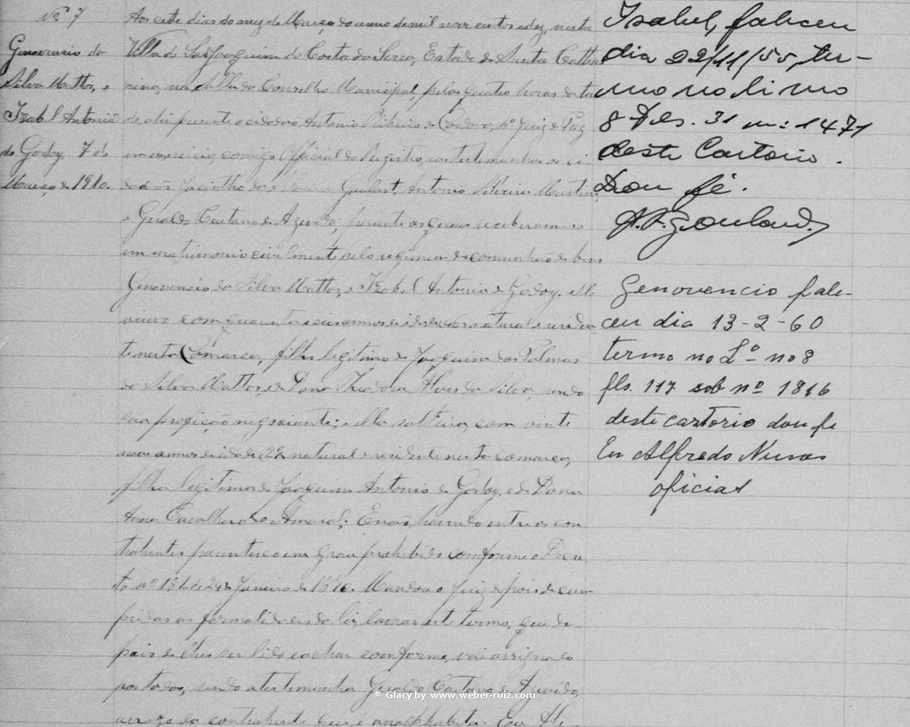 Nº 7
Genovencio da
Silva Mattos, e
Izabel Antonia
de Godoy. 7 de
Março de 1910.
Aos sete dias do mez de Março do anno de mil nove centos e dez, nesta
Villa de São Joaquim da Costa da Serra, Estado de Santa Catha
rina, na do Conselho Municipal, pelas quatro horas da tar
de ahi presente o cidadão Antonio Ribeiro de Cordova, 1º Juiz de Paz
em exercicio, comigo Official do Registro, as testemunhas os ci
dadãos Jacintho Goulart, Antonio Martins
e Geraldo Caetano de Azevedo, perante os quaes receberam-se
em matrimonio civilmente pelo regimen de comunhão de bens
Genovencio da Silva Mattos, e Izabel Antonia de Godoy. elle
viuvo com quarenta e seis annos de idade natural e residen
te nesta Comarca, filho legitimo de Joaquim das Palmas
da Silva Mattos, e Dona Alves da Silva, sendo
sua profição negociante; ella solteira, com vinte
annos de idade, 22 natural e residente nesta comarca,
filha legitima de Joaquim Antonio de Godoy, e de Dona
Anna Carvalho do Amaral; E não havendo entre os con
trahentes parentesco em grau prohibido conforme o Decre
to nº 181 de 24 de Janeiro de 1890. Mandou o Juiz depois de cum
pridas as formalidades da lei, lavrar este termo, que de
pois de lhes ser lido e achar conforme, vai assignado
por todos, sendo a testemunha Geraldo Caetano de Azevedo,
a rogo da contrahente que é analphabeta. Eu
Isabel, faleceu
dia 22/11/55, ter-
mo no livro
8 Fls. 31 nº: 1471
deste Cartorio.
Dou fé.
Genovencio fale-
ceu dia 13-2-60
termo no Lº nº 8
fls. 117 sob nº 1816
deste cartorio dou fé
Eu Alfredo Nunes
oficial
© Glacy by www.weber-ruiz.com